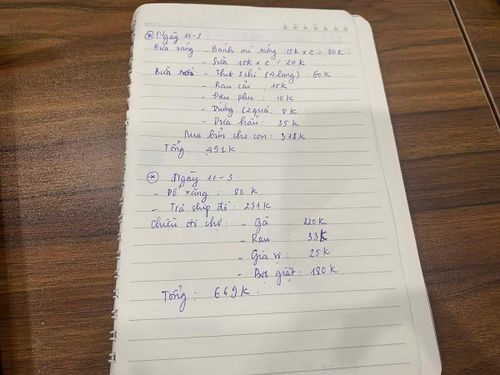 Ngày 10-3
Bữa sáng - Bánh mì trứng 15k x 2 = 30k
- Sữa 10k x 2 = 20k
Bữa - Thịt 3 chỉ (4 lạng): 60k
- Rau cải 10k
- Đậu phụ: 10k
- Trứng (2 quả: 8k
- Dưa hấu: 35k
Mua cho con: 318k
Tổng: 491k
Ngày 11-3
- Đổ xăng: 80k
- Trả ship đồ: 231k
Chiều đi chợ: - Gà 120k
- Rau: 33k
- Gia vị: 25k
- Bột giặt: 180k
Tổng: 669k